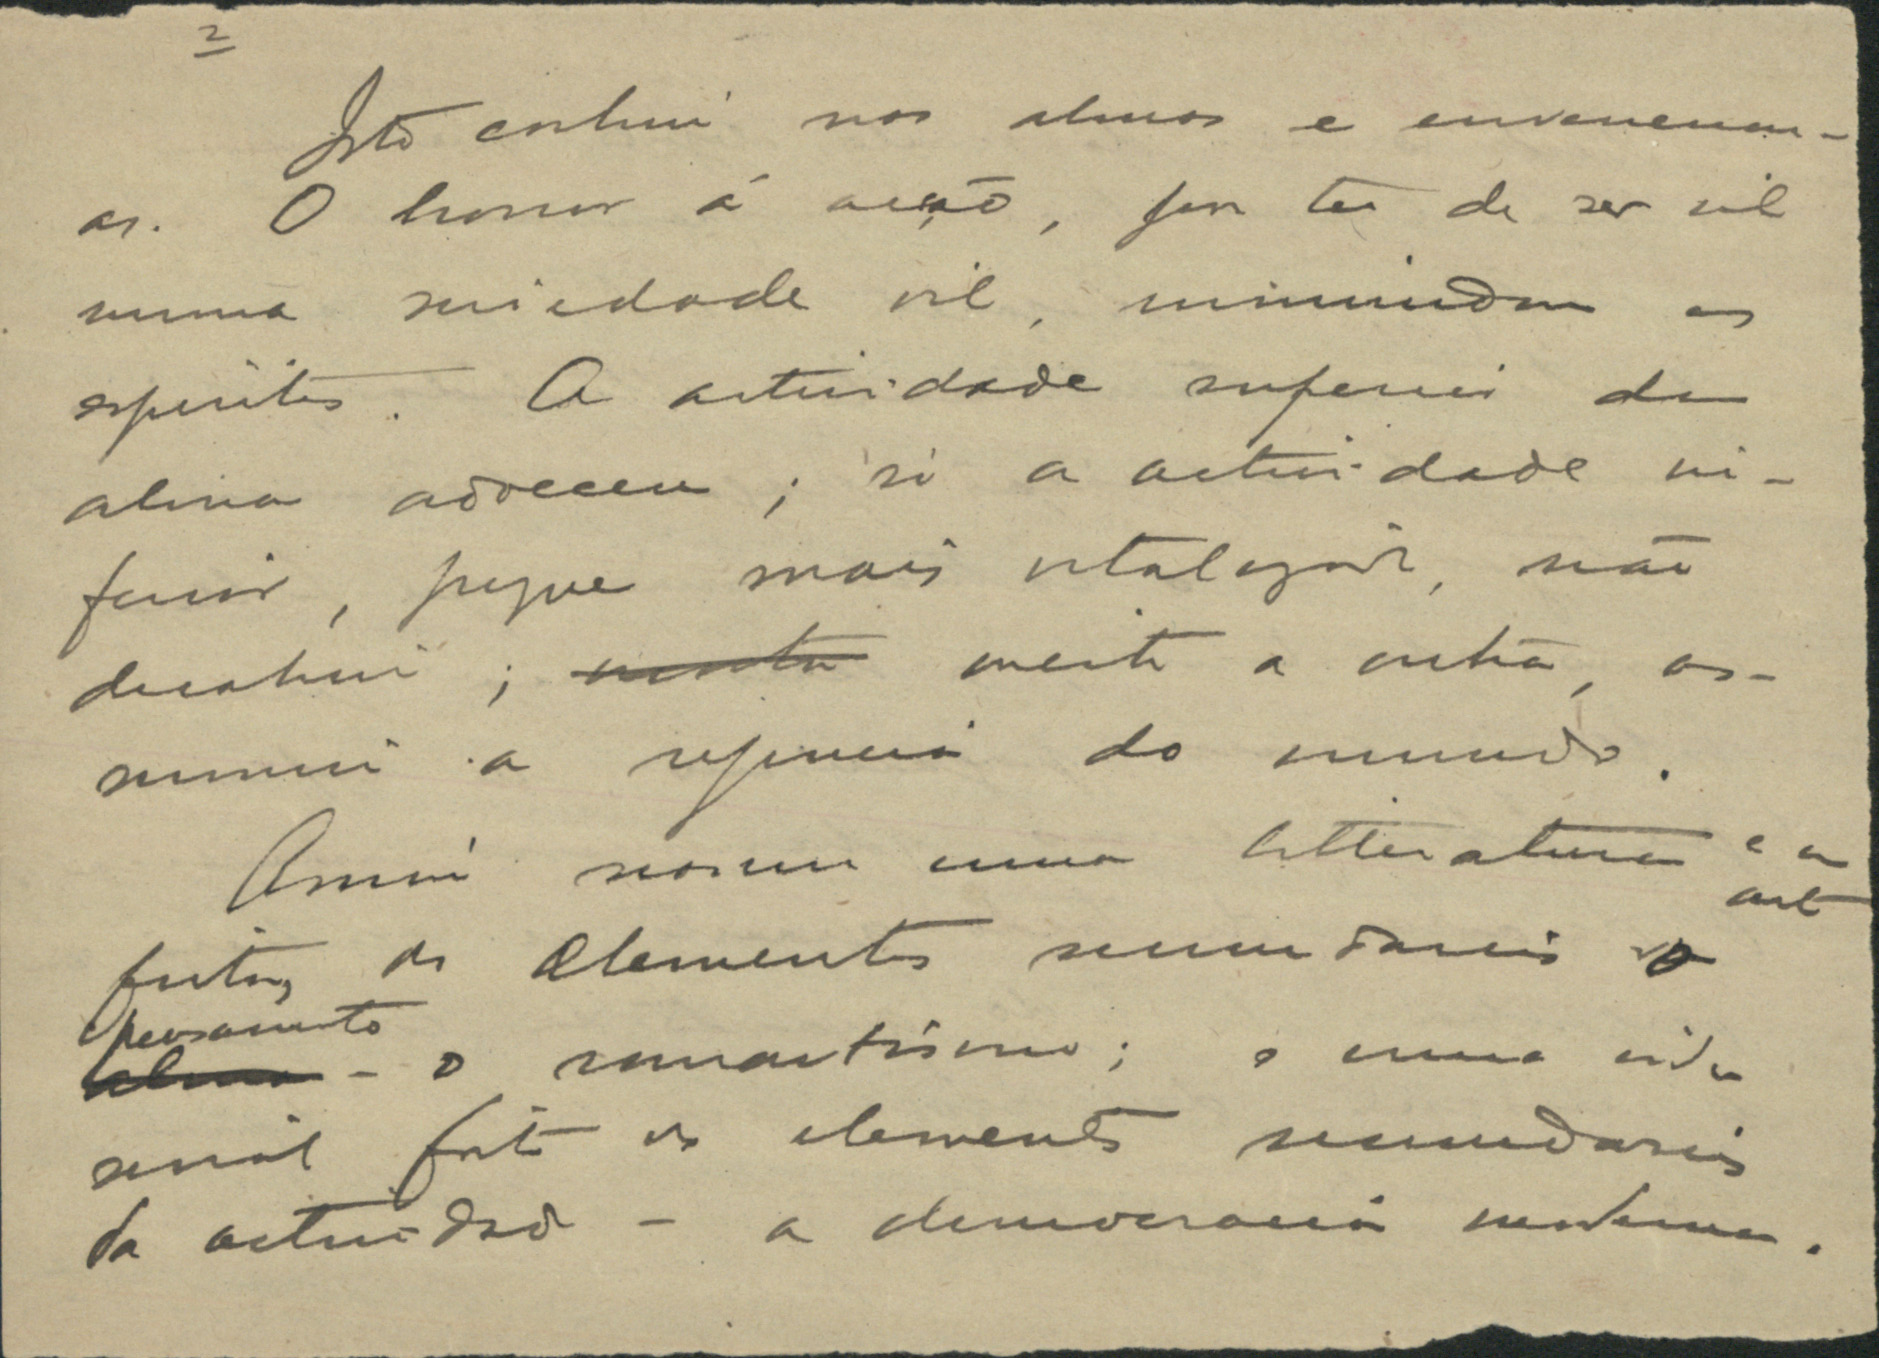 2
Isto cahiu nas almas e envenenou-
as. O horror á acção, por ter de ser vil
numa sociedade vil, inundou os
espiritos. A actividade superior da
alma adoeceu; só a actividade in-
ferior, porque mais vitalizada, não
decahiu; inerte a outra, as-
sumiu a regencia do mundo.
Assim nasceu uma litteratura e a
arte
feitas de elementos secundarios do
pensamento
alma - o romantismo; e uma vida
social feita de elementos secundarios
da actividade - a democracia moderna.